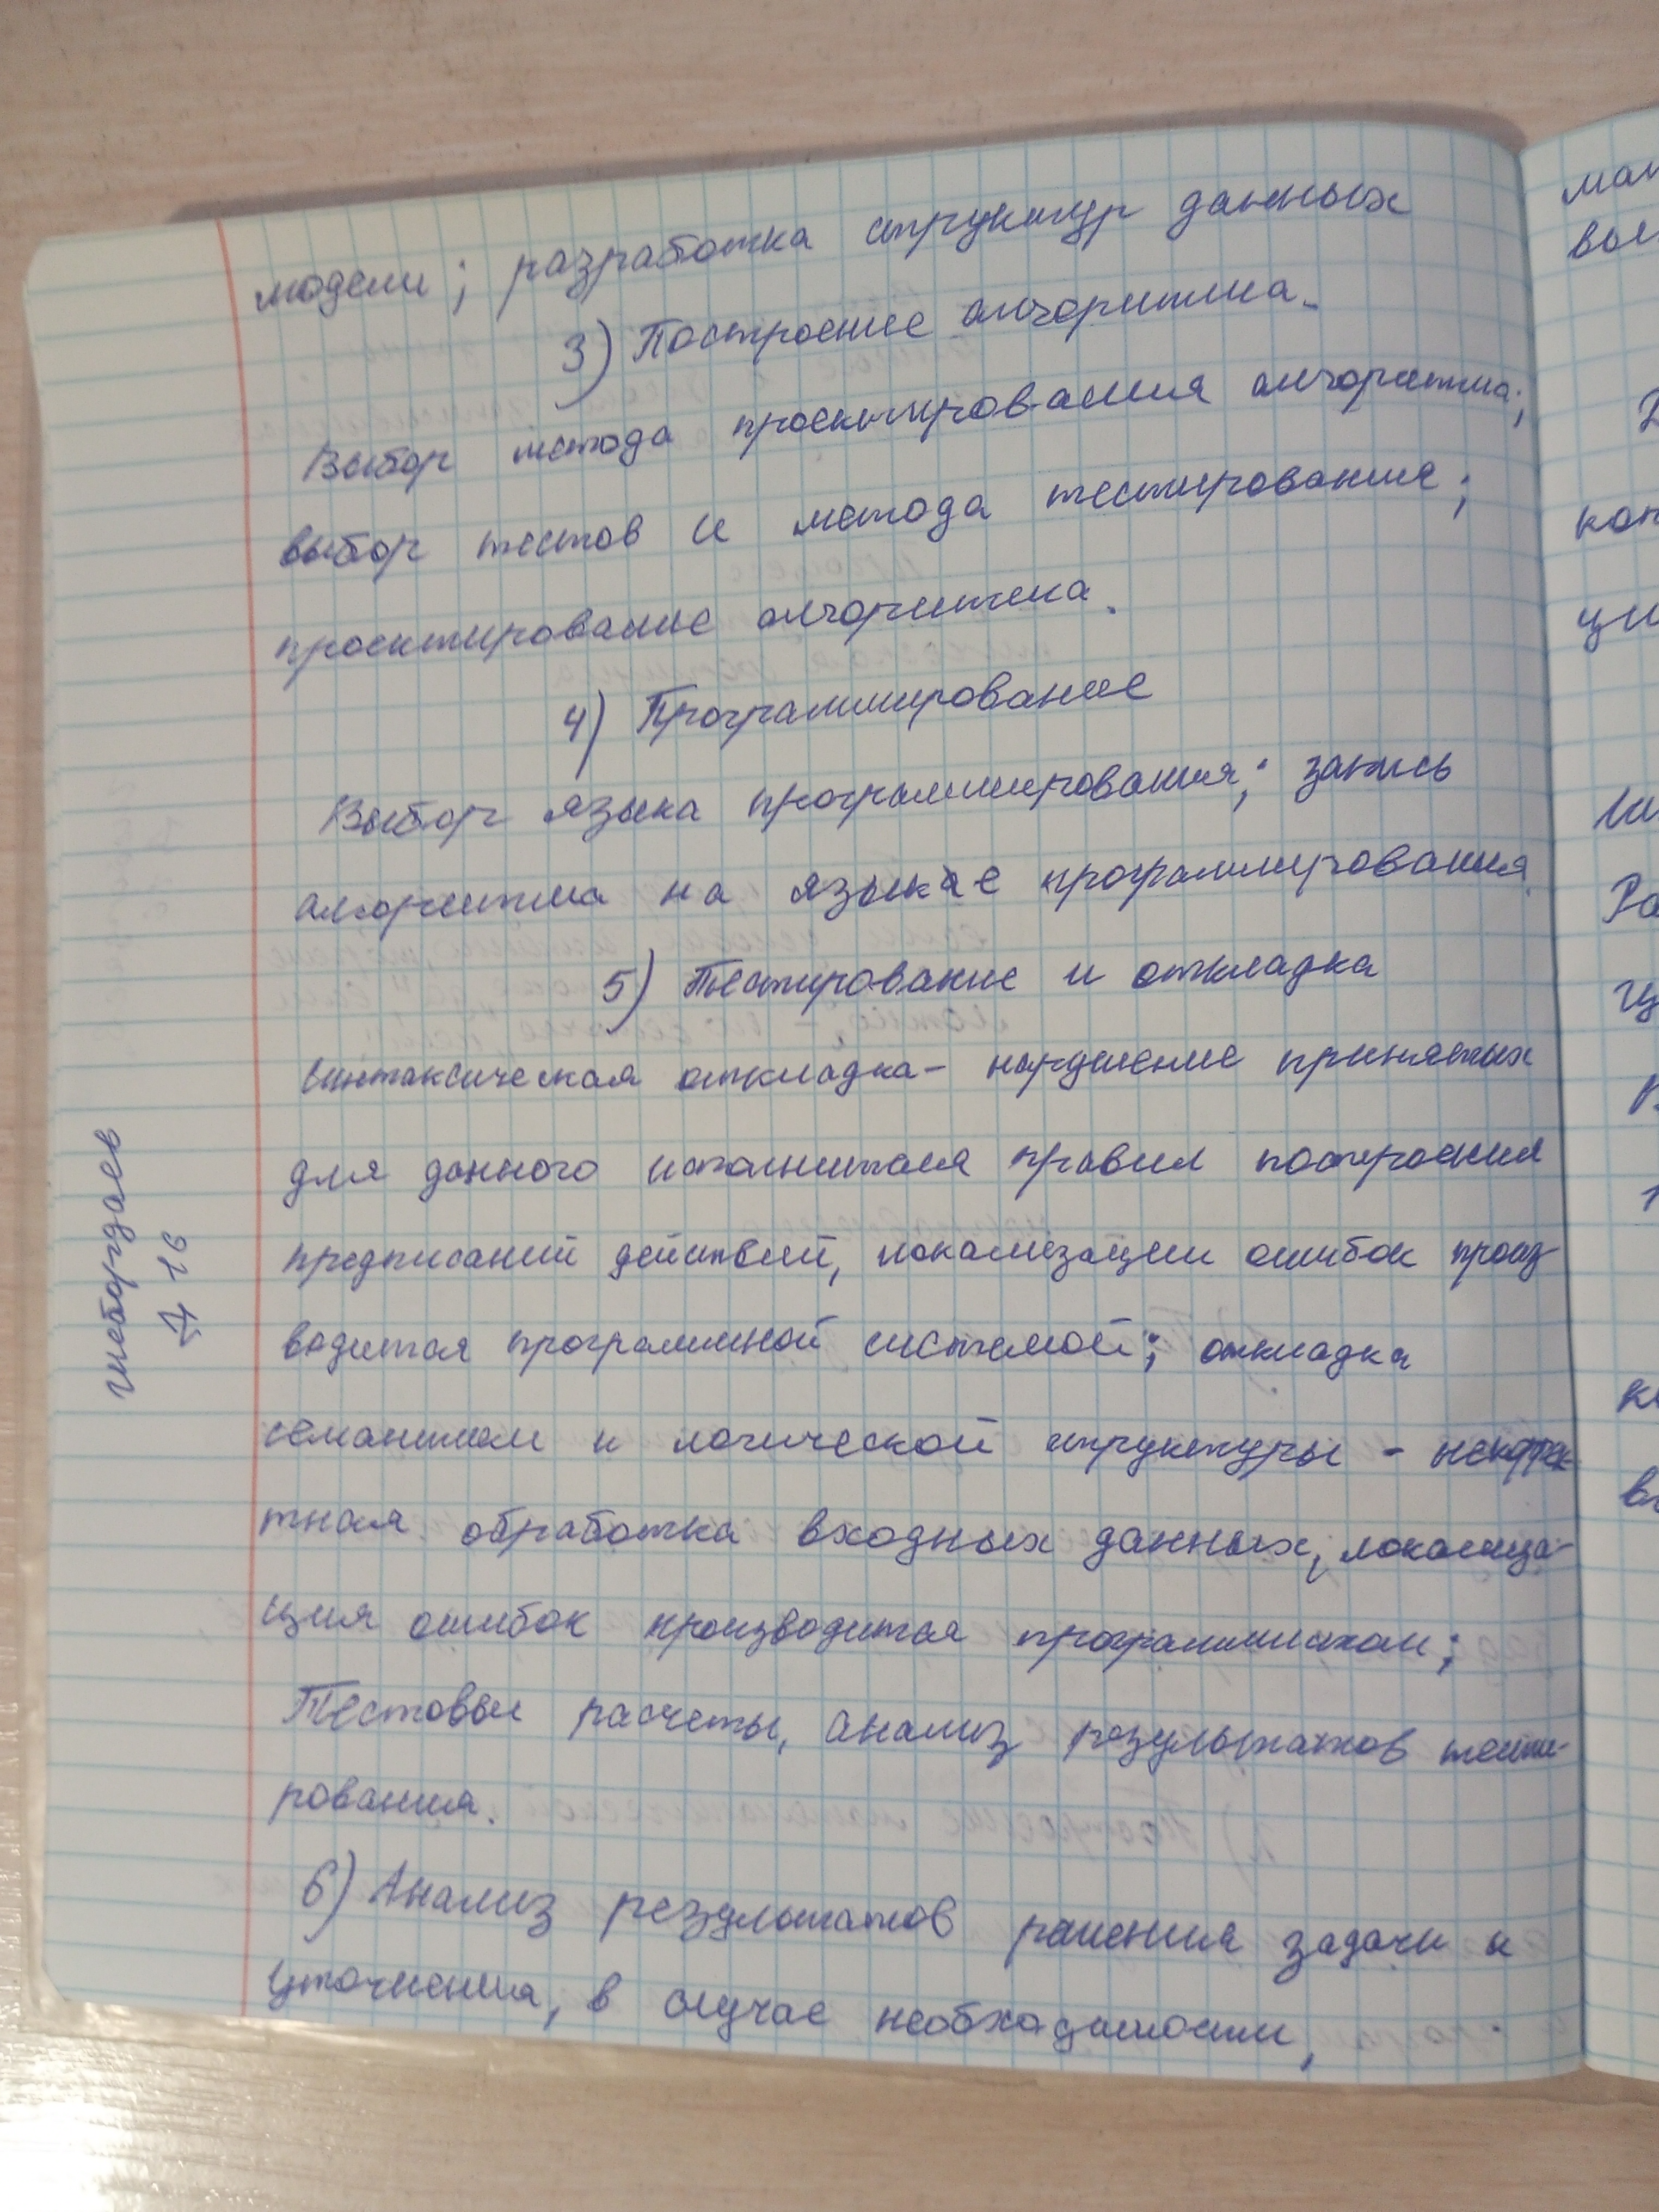 модели; разработка структур данных
3) Построение алгоритма.
Выбор метода проектирования алгоритма;
выбор тестов и метода тестирования;
проектирование алгоритма.
4) Программирование
Выбор языка программирования; запись
алгоритма на языке программирования.
5) Тестирование и откладка
Синтаксическая откладка - нарушение принятых
для данного исполнителя правил построения
предписаний действий, локализации ошибок произ-
водится программной системой; откладка
семантики и логической структуры - некоррек-
тная обработка входных данных, локализа-
ция ошибок производится программистом;
Тестовые расчеты, анализ результатов тести-
рования.
6) Анализ результатов решения задачи и
уточнения, в случае необходимости,